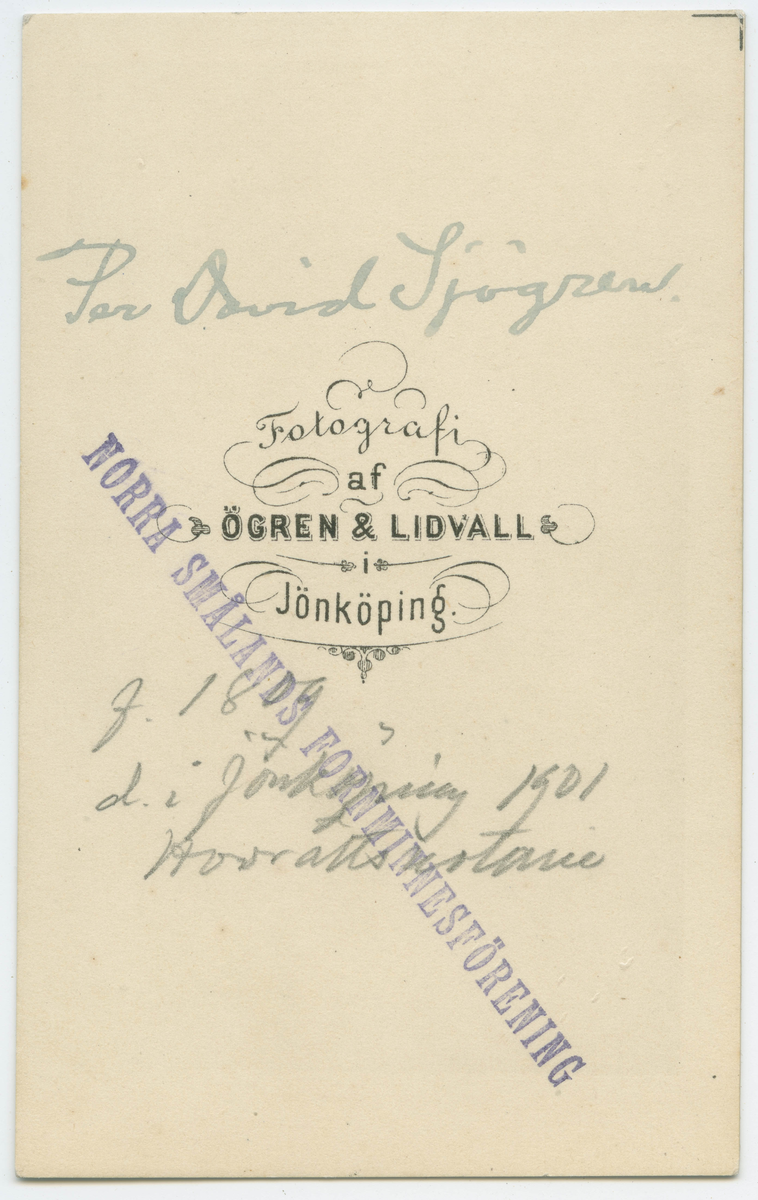 Per David Sjögren.
Fotografi
af
ÖGREN & LIDVALL
i
Jönköping.
NORRA SMÅLANDS FORNMINNESFÖRENING
f. 1879
d. i Jönköping 1901
Hovrättsnotarie